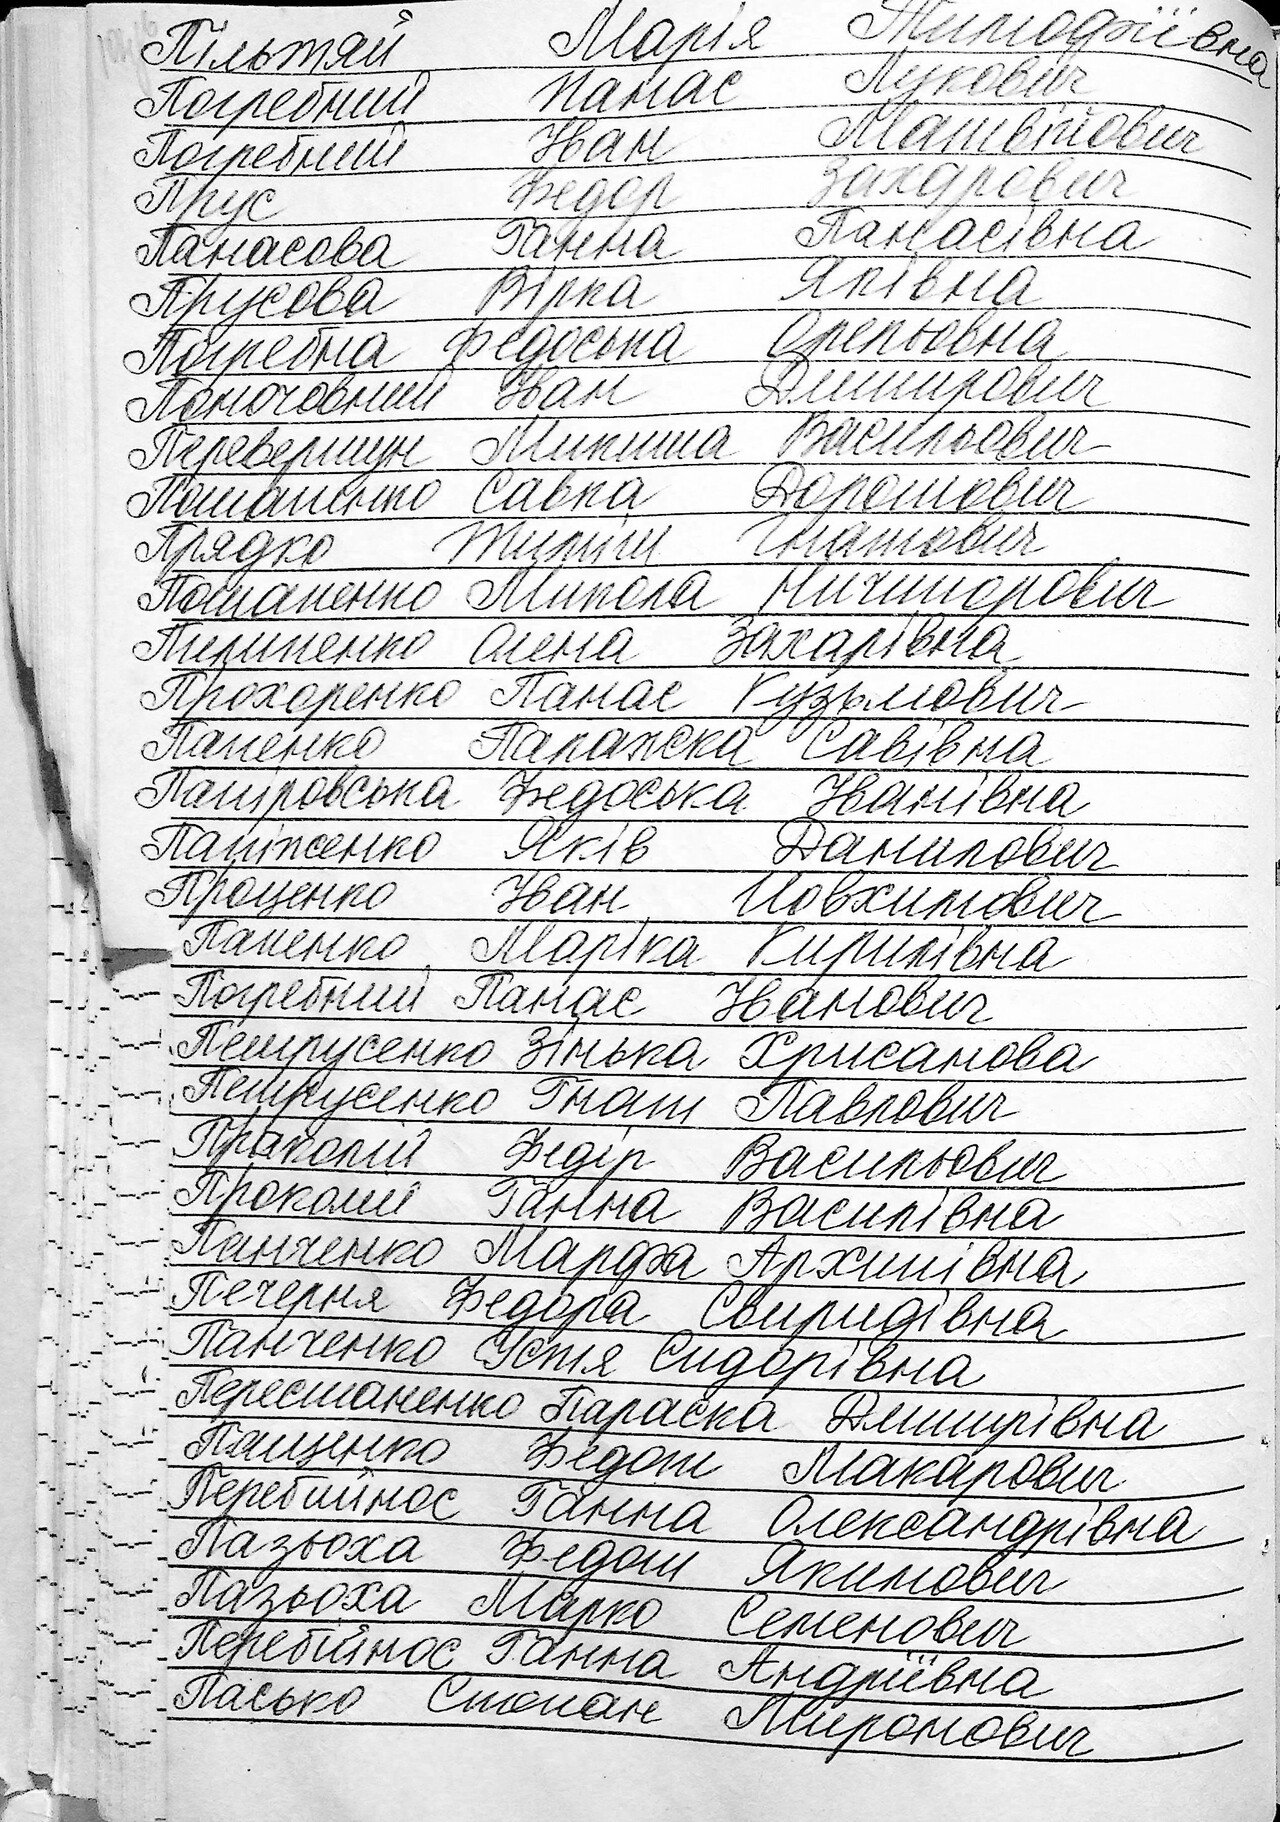 Пільтяй Марія Тимофіївна
Погребний Панас Лукович
Погребний Іван Матвійович
Прус Федор Захарович
Панасова Ганна Панасівна
Прусова Вірка Яківна
Погребна Федоська Орепьовна
Поночовний Іван Дмитрович
Перевершун Микита Васильович
Потапенко Савка Дорошович
Прядко Тиміш Гнатович
Потапенко Микола Ничипорович
Пилипенко Олена Захарівна
Прохоренко Панас Кузьмович
Папенко Паражска Савівна
Папіровська Федоська Іванівна
Паніженко Яків Данилович
Проценко Іван Йовхимович
Папенко Маріка Кирилівна
Погребний Панас Іванович
Петрусенко Зінька Хрисанова
Петрусенко Гнат Павлович
Пракопій Федір Васильович
Прокопій Ганна Василівна
Панченко Марфа Архипівна
Печерня Федора Свиридівна
Панченко Устя Сидорівна
Перестаненко Параска Дмитрівна
Пащенко Федот Макарович
Перебийнос Ганна Олександрівна
Пазьоха Федот Якимович
Пазьоха Марко Семенович
Перебійнос Ганна Андріївна
Пасько Степан Миронович